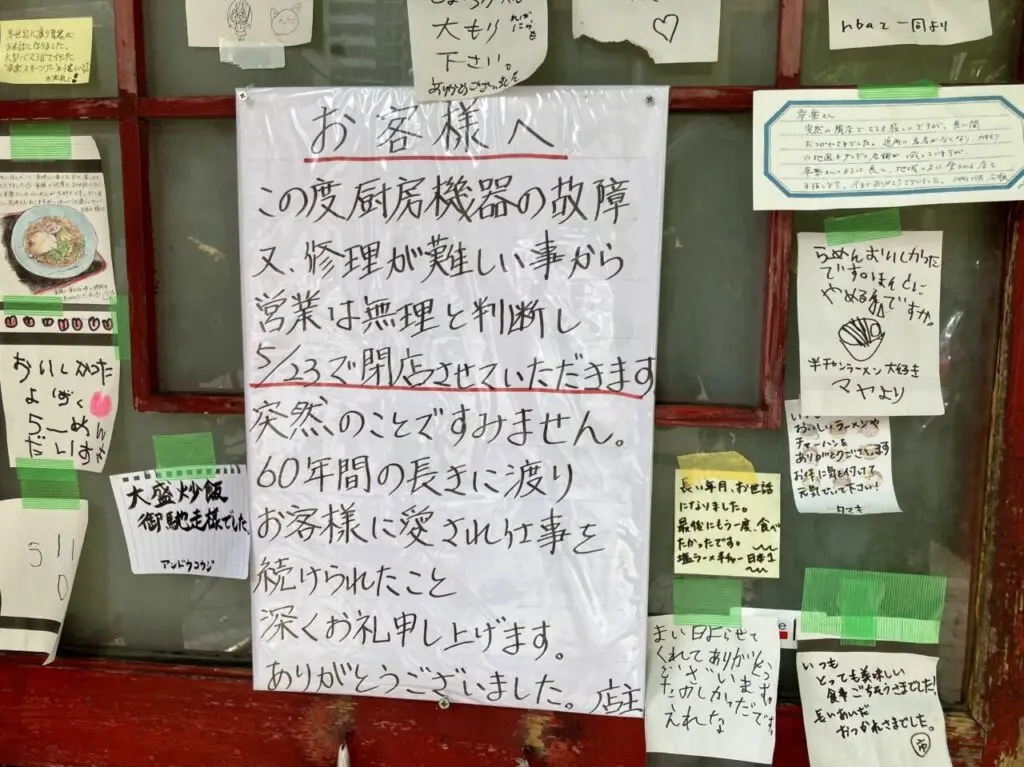 お世話になりました。
大もり
下さい。
ありがとうございました
一同より
お客様へ
この度厨房機器の故障
又、修理が難しい事から
営業は無理と判断し
5/23で閉店させていただきます
突然のことですみません。
60年間の長きに渡り
お客様に愛され仕事を
続けられたこと
深くお礼申し上げます。
ありがとうございました。店主
おいしかった
らーめん
大盛炒飯
御馳走様でした。
アンドウコウジ
511
0
幸楽さん
らめんおいしかった
です。ほんとに
やめる
ですか。
半チャンラーメン大好き
マヤより
おいしいラーメンや
チャーハンを
ありがとうございます
お体に気を付けて
元気でいて下さい!
タマキ
長い年月、お世話
になりました。
最後にもう一度、食べ
たかったです。
塩ラーメン
日本一
まい日よらせて
くれてありがとう
ございます。
いつも
とっても美味しい
食事ごちそうさまでした!
長いあいだ
おつかれさまでした。